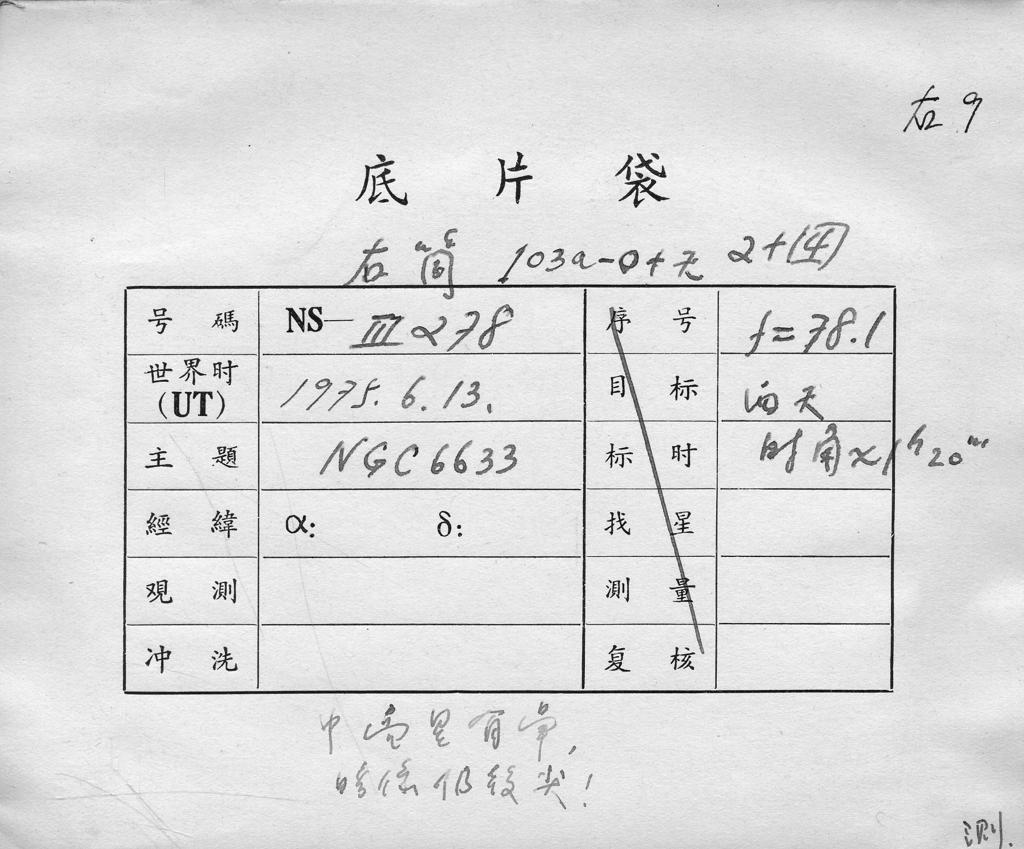 右 9
底 片 袋
右 筒 103a-O+无 2+14
号 碼 NS— III 278 序 号 f=78.1
世界时 (UT) 1975. 6. 13. 目 标 西天
主 題 NGC 6633 标 时 时角≈1ʰ20ᵐ
經 緯 α: δ: 找 星
观 測 測 量
冲 洗 复 核
中亮星有晕,
暗像仍较尖!
测.